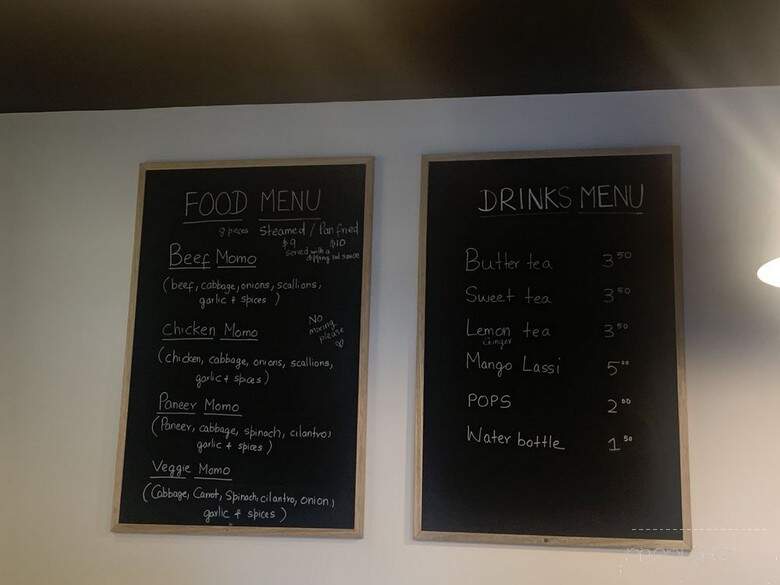 FOOD MENU
8 pieces Steamed / Pan fried
$9 $10
served with a
dipping red sauce
Beef Momo
(beef, cabbage, onions, scallions,
garlic + spices)
Chicken Momo
No
mixing
please
(chicken, cabbage, onions, scallions,
garlic + spices)
Paneer Momo
(Paneer, cabbage, spinach, cilantro,
garlic + spices)
Veggie Momo
(Cabbage, Carrot, Spinach, cilantro, onion,
garlic + spices)
DRINKS MENU
Butter tea 3 50
Sweet tea 3 50
Lemon tea 3 50
Ginger
Mango Lassi 5 00
POPS 2 00
Water bottle 1 50